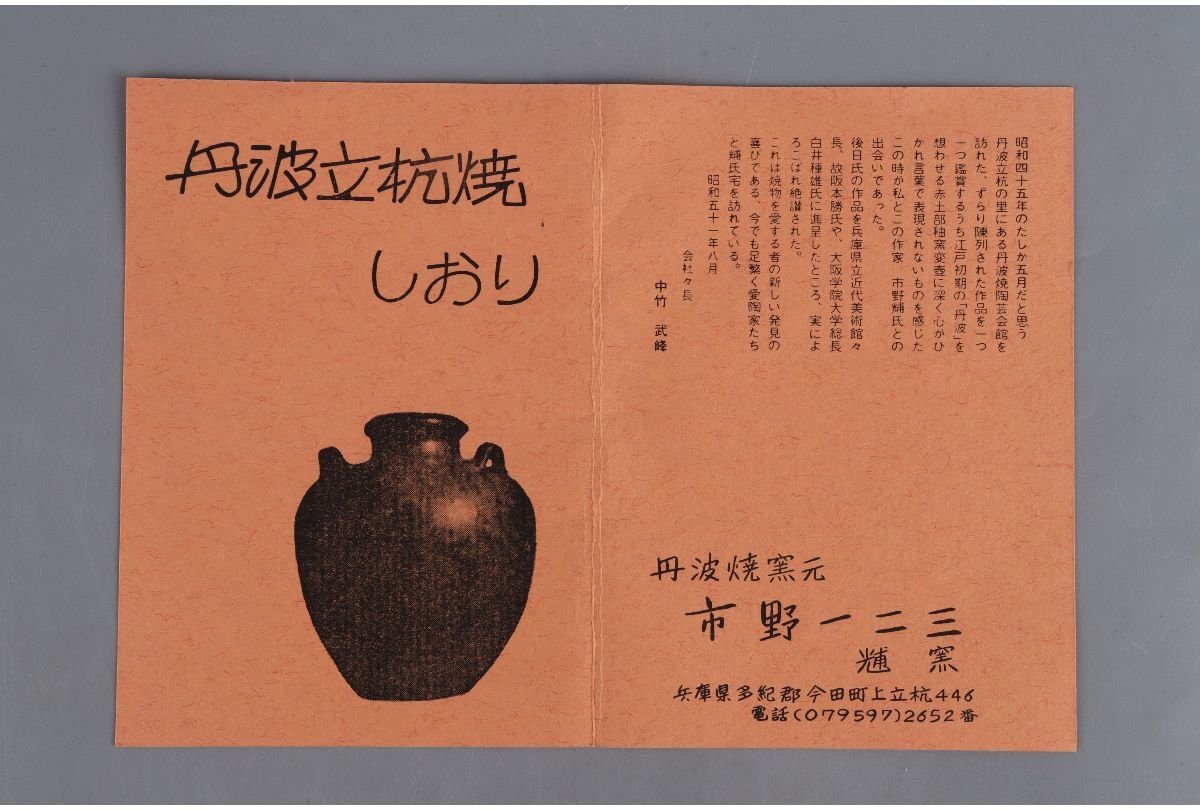 丹波立杭焼
しおり
昭和四十五年のたしか五月だと思う
丹波立杭の里にある丹波焼陶芸会館を
訪れた、ずらり陳列された作品を一つ
一つ鑑賞するうち江戸初期の「丹波」を
想わせる赤土部秞窯変壺に深く心がひ
かれ言葉で表現されないものを感じた
この時が私とこの作家 市野輔氏との
出会いであった。
後日氏の作品を兵庫県立近代美術館々
長、故阪本勝氏や、大阪学院大学総長
白井種雄氏に進呈したところ、実によ
ろこばれ絶讃された。
これは焼物を愛する者の新しい発見の
喜びである、今でも足繁く愛陶家たち
と輔氏宅を訪れている。
昭和五十一年八月
会社々長
中竹 武峰
丹波焼窯元
市野一二三
窯
兵庫県多紀郡今田町上立杭446
電話(079597)2652番